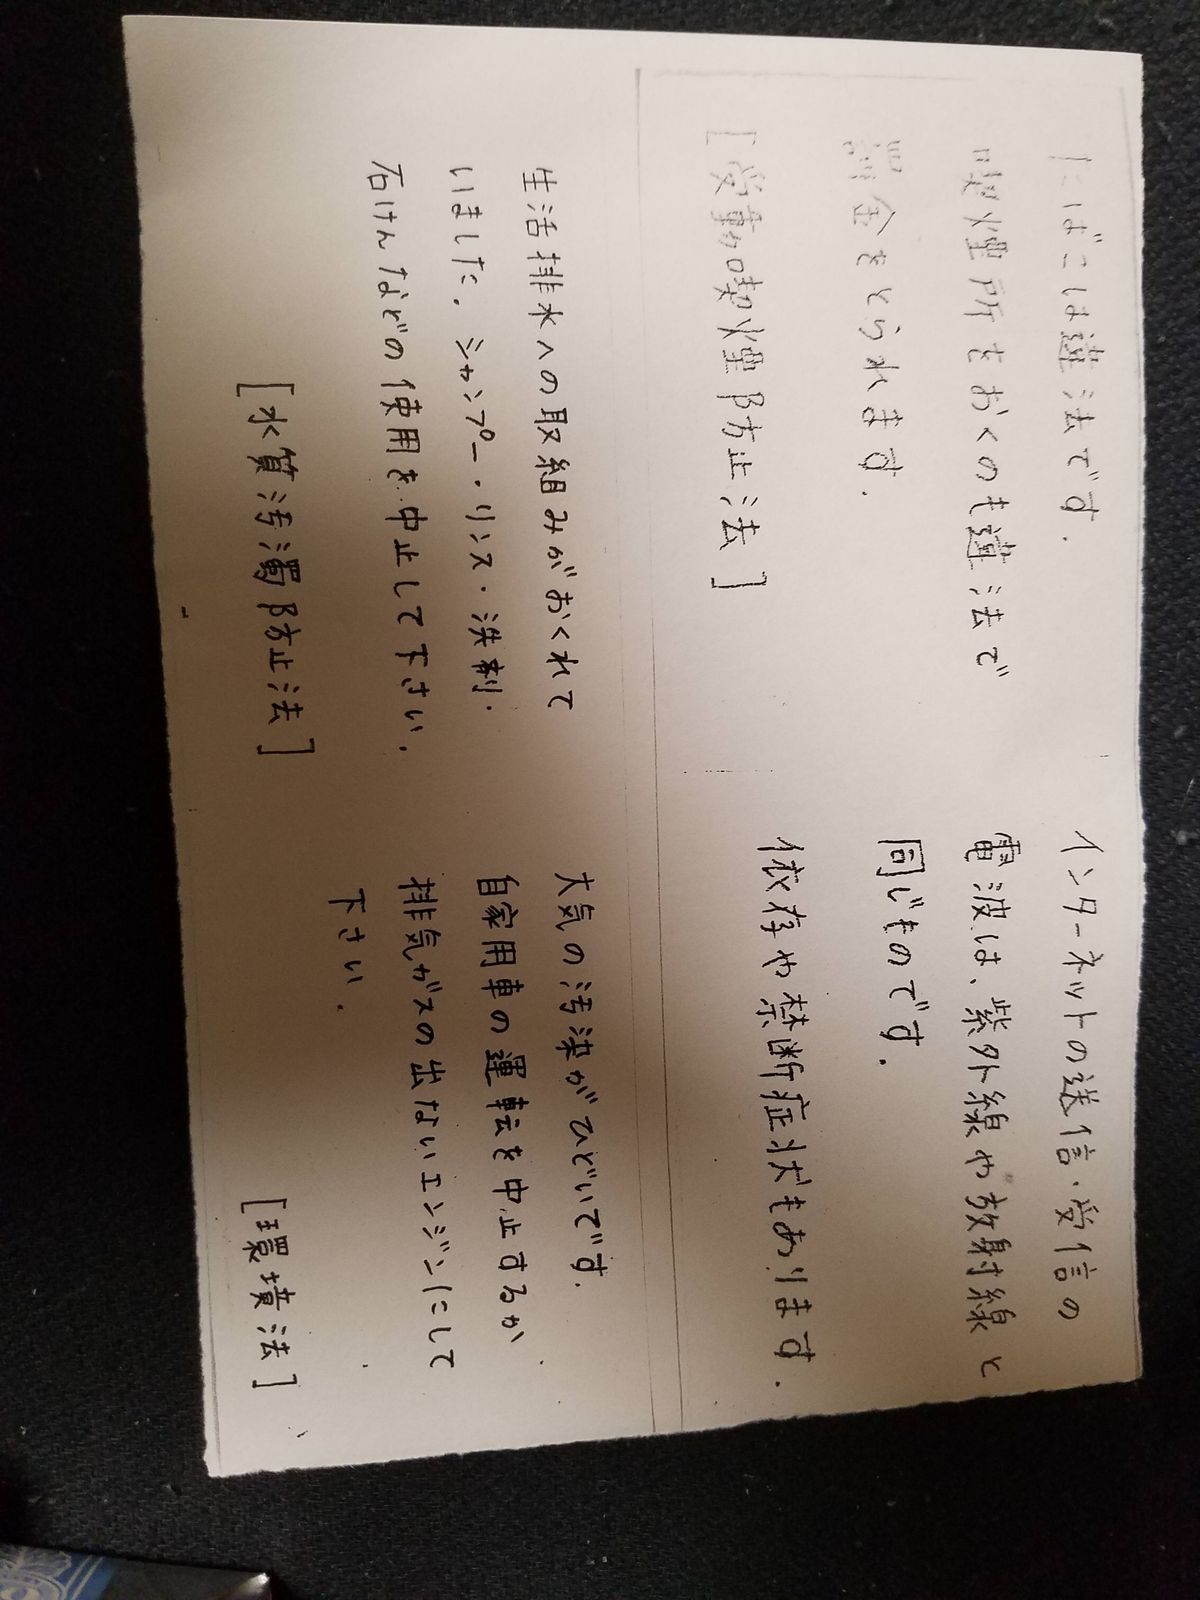 たばこは違法です.
喫煙所をおくのも違法で
罰金をとられます.
[受動喫煙防止法]
インターネットの送信・受信の
電波は、紫外線や放射線と
同じものです.
依存や禁断症状もあります.
生活排水への取組みがおくれて
いました. シャンプー・リンス・洗剤・
石けんなどの使用を中止して下さい.
[水質汚濁防止法]
大気の汚染がひどいです.
自家用車の運転を中止するか
排気ガスの出ないエンジンにして
下さい.
[環境法]